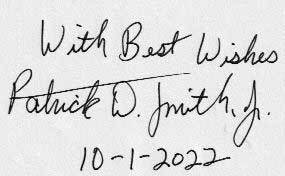 With Best Wishes
Patrick D. Smith, Jr.
10-1-2022